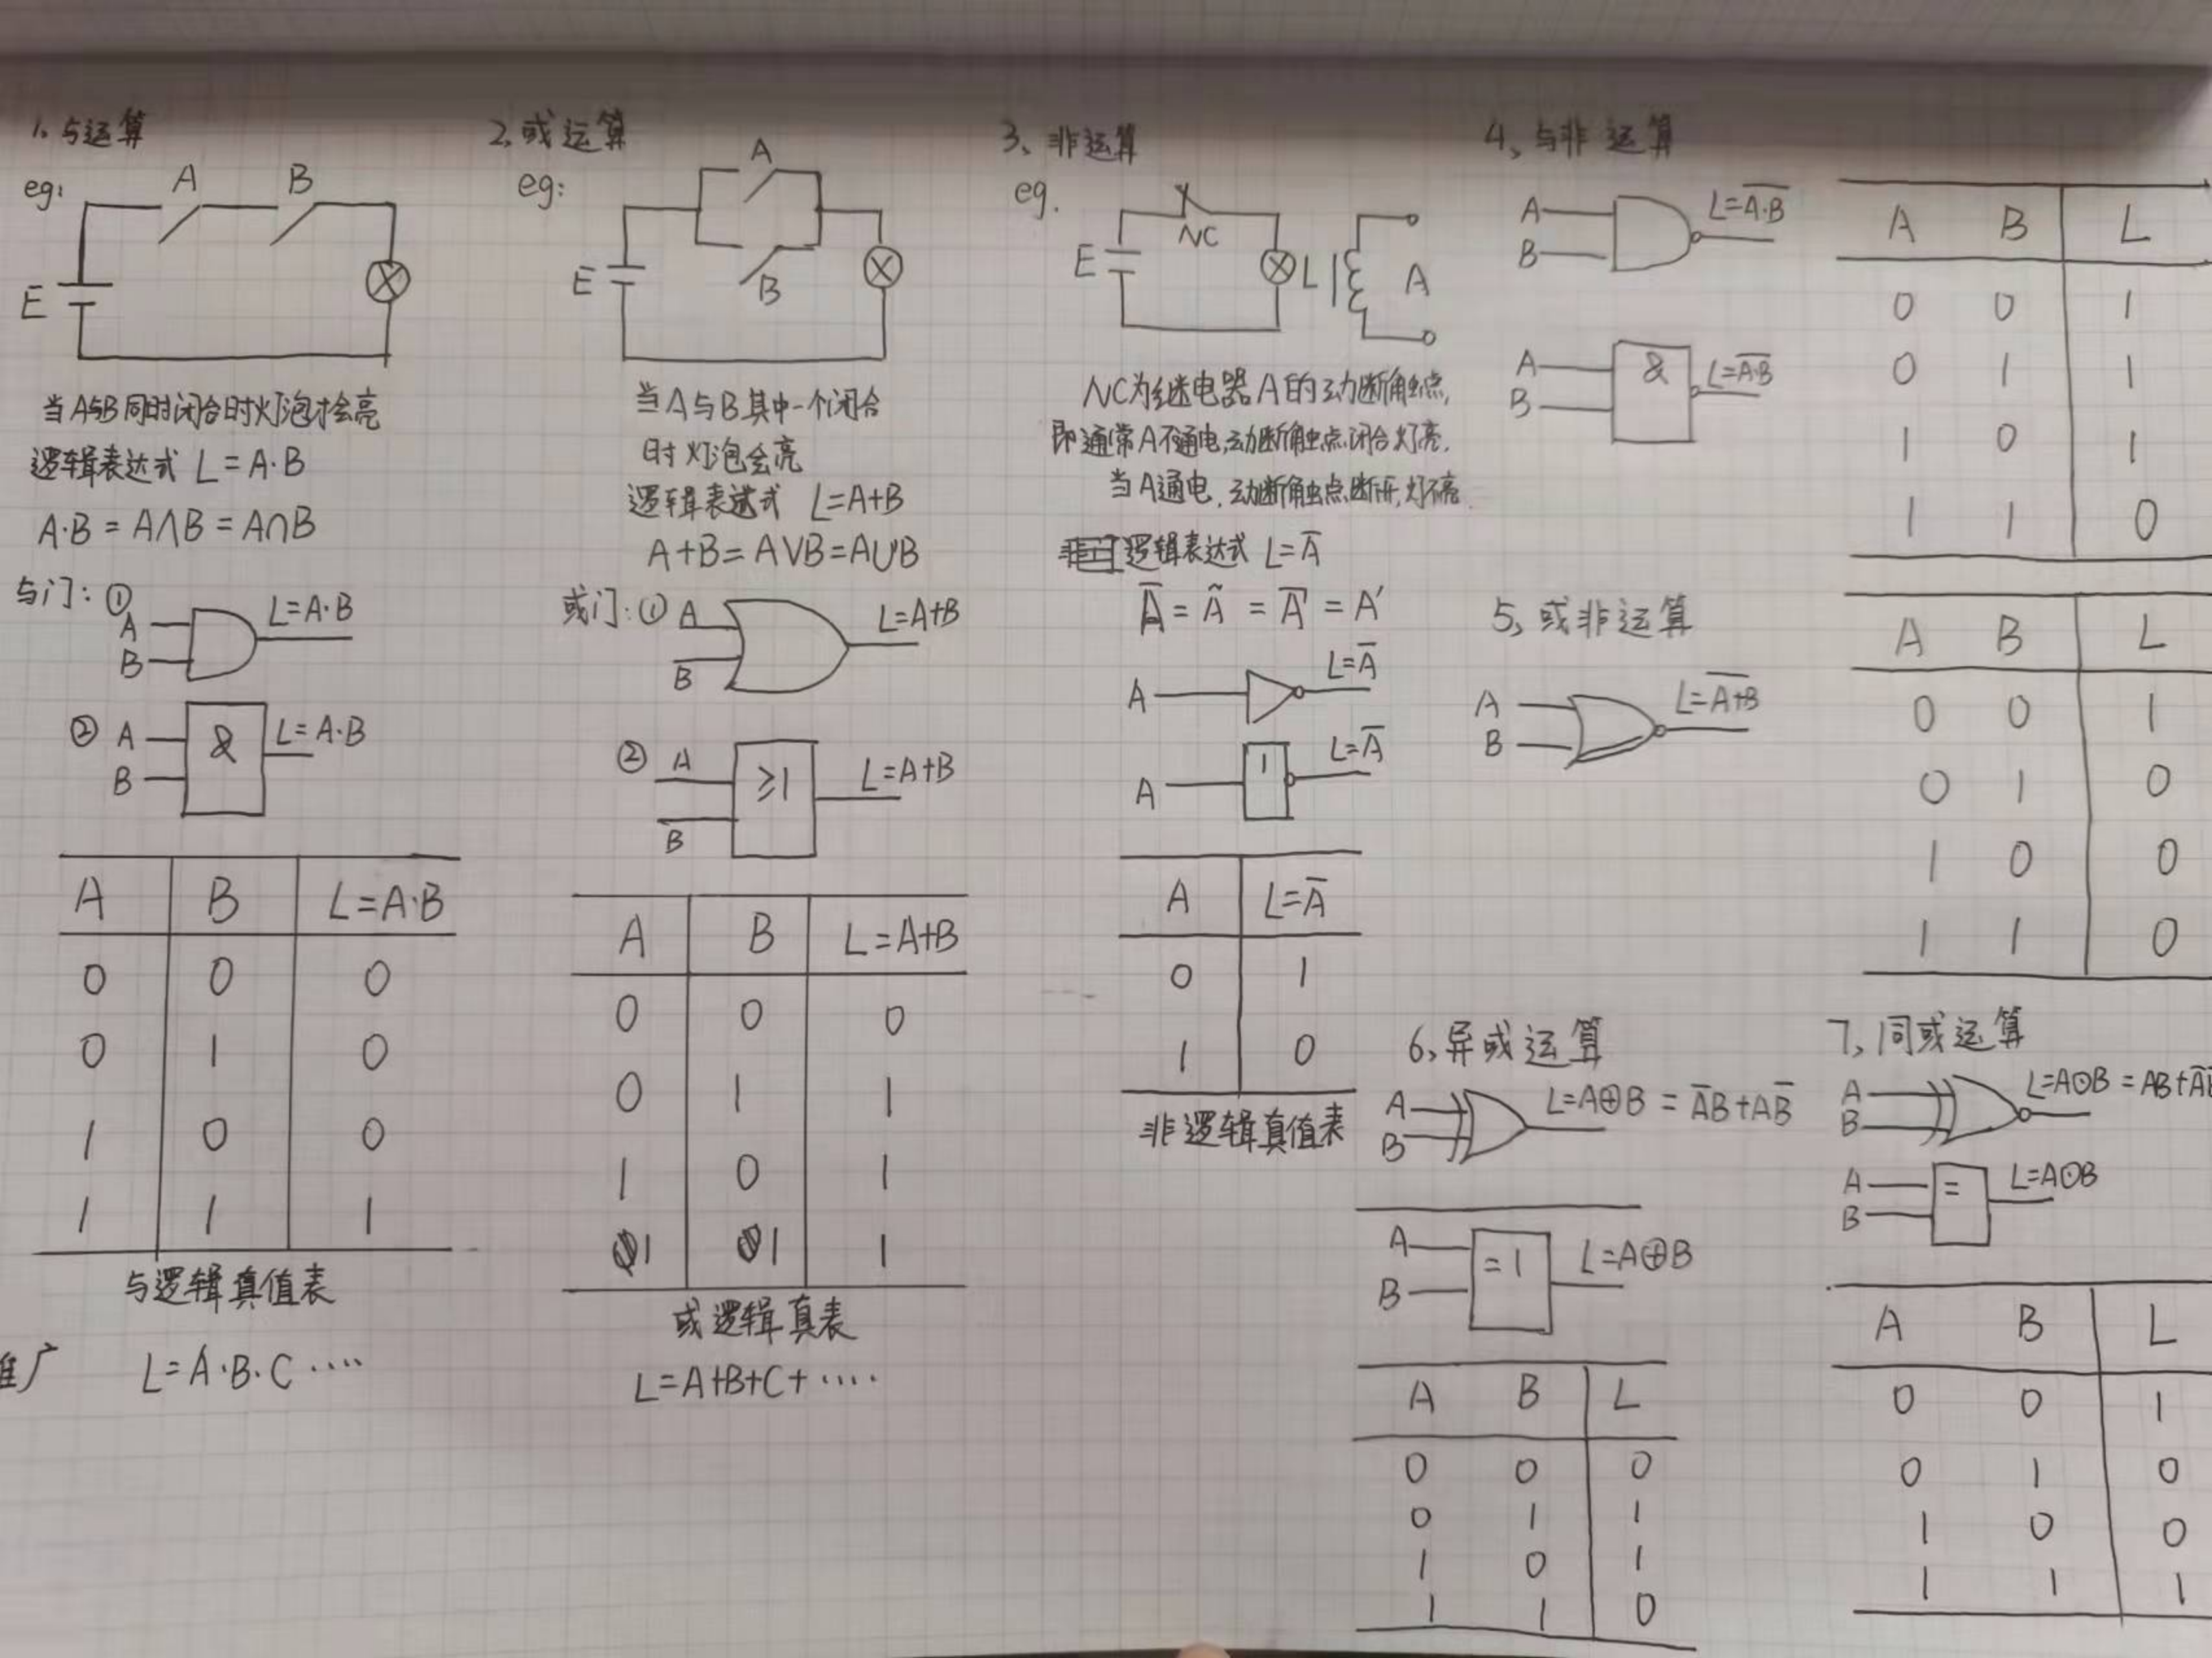 1、与运算
eg:
A B
E
当A与B同时闭合时灯泡才会亮
逻辑表达式 L=A·B
A·B=A∧B=A∩B
与门:①
A
B
L=A·B
② A
B
&
L=A·B
A B L=A·B
0 0 0
0 1 0
1 0 0
1 1 1
与逻辑真值表
推广 L=A·B·C····
2、或运算
eg:
A
B
E
当A与B其中一个闭合
时灯泡会亮
逻辑表达式 L=A+B
A+B=A∨B=A∪B
或门:① A
B
L=A+B
② A
B
≥1
L=A+B
A B L=A+B
0 0 0
0 1 1
1 0 1
1 1 1
或逻辑真表
L=A+B+C+····
3、非运算
eg.
NC
E
L
A
NC为继电器A的动断触点,
即通常A不通电,动断触点闭合灯亮.
当A通电,动断触点断开,灯不亮.
逻辑表达式 L=A̅
A̅=Ã=A̅=A′
A
L=A̅
A
1
L=A̅
A L=A̅
0 1
1 0
非逻辑真值表
4、与非运算
A
B
L=A̅·̅B̅
A
B
&
L=A̅·̅B̅
A B L
0 0 1
0 1 1
1 0 1
1 1 0
5、或非运算
A
B
L=A̅+̅B̅
A B L
0 0 1
0 1 0
1 0 0
1 1 0
6、异或运算
A
B
L=A⊕B=A̅B+AB̅
A
B
=1
L=A⊕B
A B L
0 0 0
0 1 1
1 0 1
1 1 0
7、同或运算
A
B
L=A⊙B=AB+A̅
A
B
=
L=A⊙B
A B L
0 0 1
0 1 0
1 0 0
1 1 1